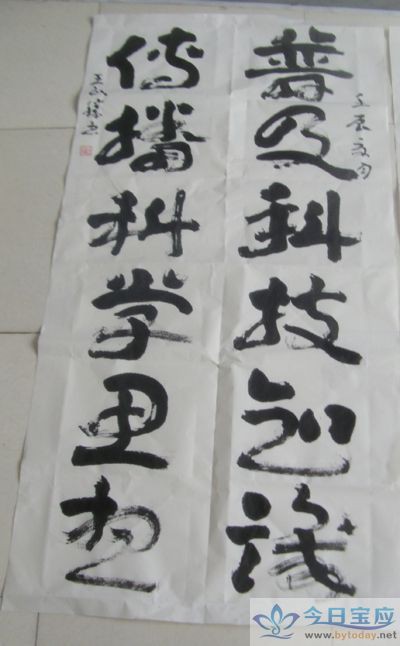 普及科技知识
壬辰夏月
传播科学思想
今日宝应
www.bytoday.net